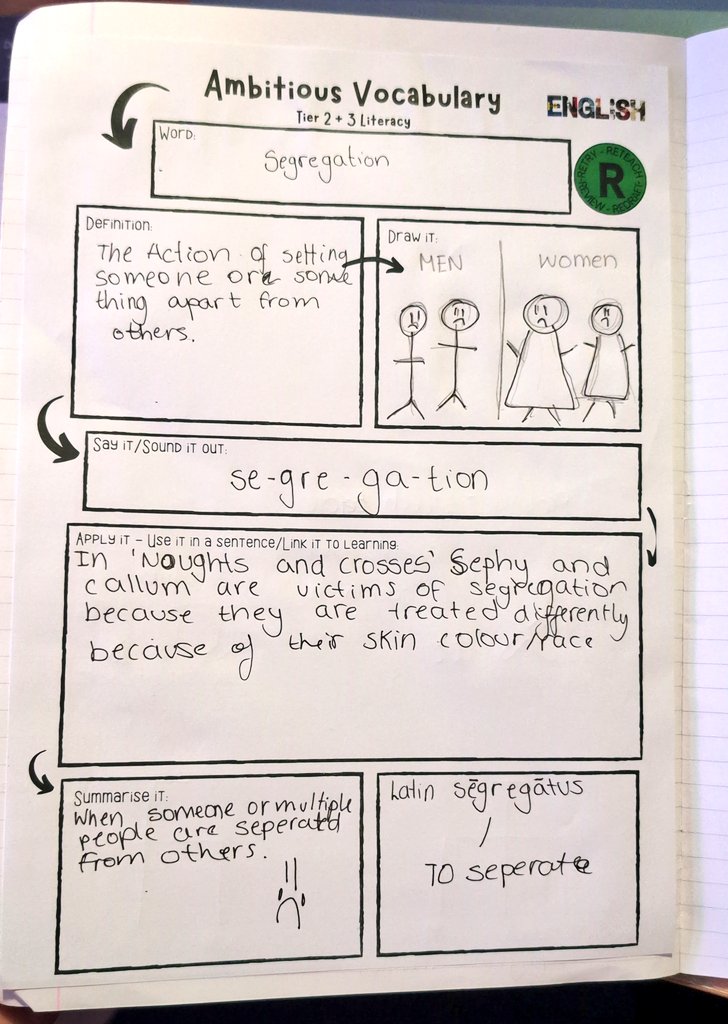 Ambitious Vocabulary
Tier 2 + 3 Literacy
ENGLISH
Word:
Segregation
RETRY - RETEACH
R
REVIEW -
Definition:
The Action of setting
someone or some
thing apart from
others.
Draw it:
MEN
women
Say it/Sound it out:
se-gre-ga-tion
Apply it – Use it in a sentence/Link it to learning:
In 'Noughts and crosses' Sephy and
callum are victims of segregation
because they are treated differently
because of their skin colour/race
Summarise it:
When someone or multiple
people are seperated
from others.
Latin sēgregātus
/
TO seperate